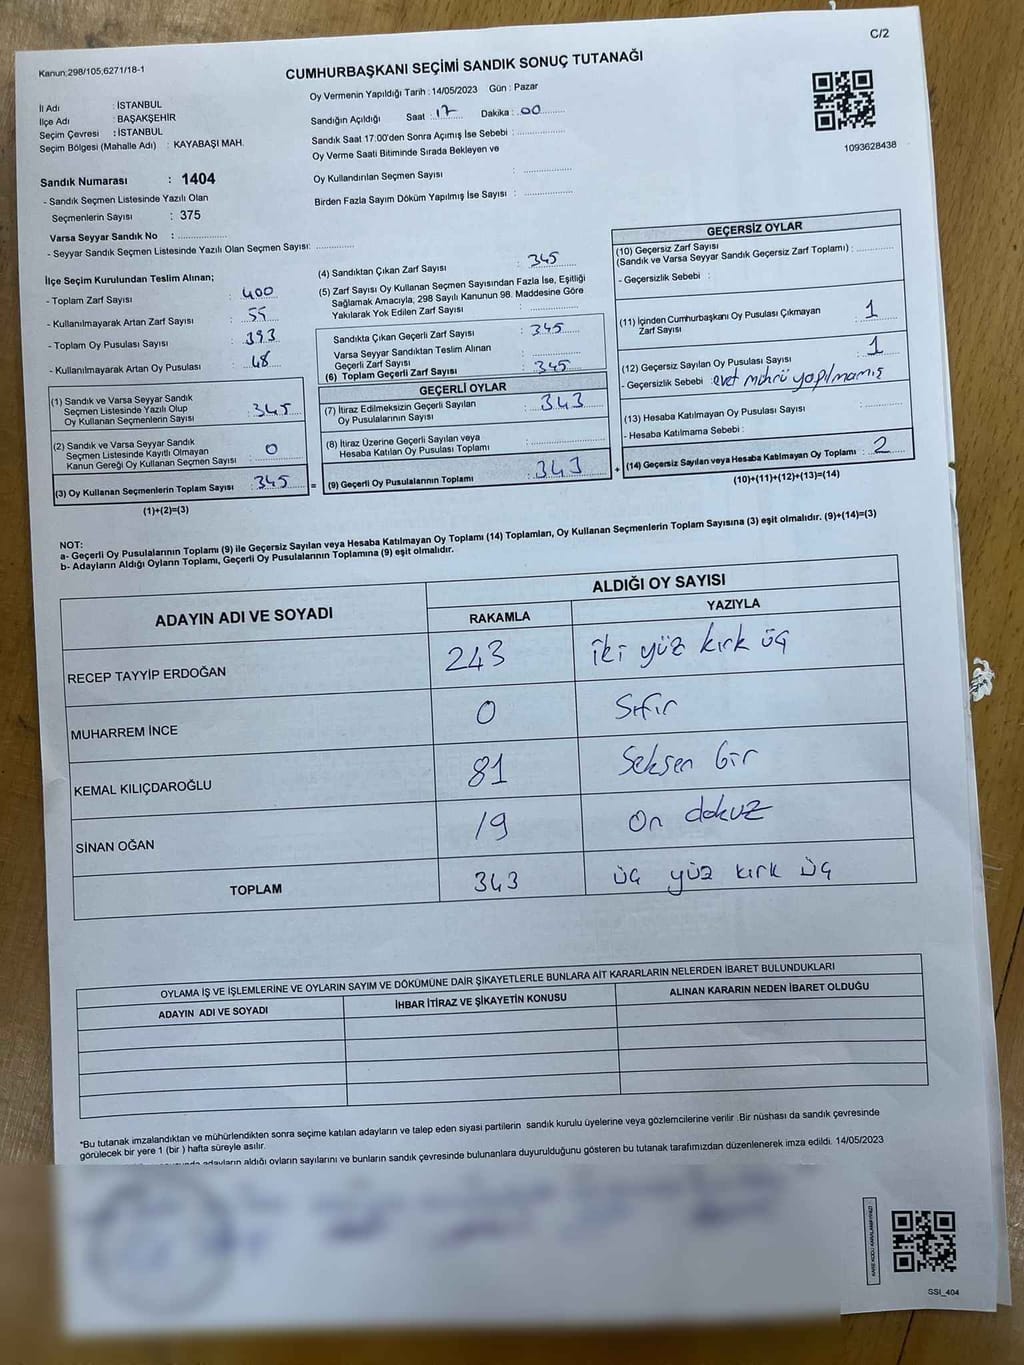 C/2
Kanun:298/105;6271/18-1
CUMHURBAŞKANI SEÇİMİ SANDIK SONUÇ TUTANAĞI
İl Adı : İSTANBUL
İlçe Adı : BAŞAKŞEHİR
Seçim Çevresi : İSTANBUL
Seçim Bölgesi (Mahalle Adı) : KAYABAŞI MAH.
Sandık Numarası : 1404
- Sandık Seçmen Listesinde Yazılı Olan
Seçmenlerin Sayısı : 375
Varsa Seyyar Sandık No :
- Seyyar Sandık Seçmen Listesinde Yazılı Olan Seçmen Sayısı:
Oy Vermenin Yapıldığı Tarih : 14/05/2023 Gün : Pazar
Sandığın Açıldığı Saat : 17 Dakika : 00
Sandık Saat 17:00'den Sonra Açımış İse Sebebi :
Oy Verme Saati Bitiminde Sırada Bekleyen ve
Oy Kullandırılan Seçmen Sayısı :
Birden Fazla Sayım Döküm Yapılmış İse Sayısı :
1093628438
İlçe Seçim Kurulundan Teslim Alınan;
- Toplam Zarf Sayısı : 400
- Kullanılmayarak Artan Zarf Sayısı : 55
- Toplam Oy Pusulası Sayısı : 393
- Kullanılmayarak Artan Oy Pusulası : 48
(1) Sandık ve Varsa Seyyar Sandık
Seçmen Listesinde Yazılı Olup
Oy Kullanan Seçmenlerin Sayısı : 345
(2) Sandık ve Varsa Seyyar Sandık
Seçmen Listesinde Kayıtlı Olmayan
Kanun Gereği Oy Kullanan Seçmen Sayısı : 0
(3) Oy Kullanan Seçmenlerin Toplam Sayısı : 345
(1)+(2)=(3)
(4) Sandıktan Çıkan Zarf Sayısı : 345
(5) Zarf Sayısı Oy Kullanan Seçmen Sayısından Fazla İse, Eşitliği
Sağlamak Amacıyla, 298 Sayılı Kanunun 98. Maddesine Göre
Yakılarak Yok Edilen Zarf Sayısı :
Sandıkta Çıkan Geçerli Zarf Sayısı : 345
Varsa Seyyar Sandıktan Teslim Alınan
Geçerli Zarf Sayısı :
(6) Toplam Geçerli Zarf Sayısı : 345
GEÇERLİ OYLAR
(7) İtiraz Edilmeksizin Geçerli Sayılan
Oy Pusulalarının Sayısı : 343
(8) İtiraz Üzerine Geçerli Sayılan veya
Hesaba Katılan Oy Pusulası Toplamı :
= (9) Geçerli Oy Pusulalarının Toplamı : 343
GEÇERSİZ OYLAR
(10) Geçersiz Zarf Sayısı
(Sandık ve Varsa Seyyar Sandık Geçersiz Zarf Toplamı) :
- Geçersizlik Sebebi :
(11) İçinden Cumhurbaşkanı Oy Pusulası Çıkmayan
Zarf Sayısı : 1
(12) Geçersiz Sayılan Oy Pusulası Sayısı : 1
- Geçersizlik Sebebi : evet mührü yapılmamış
(13) Hesaba Katılmayan Oy Pusulası Sayısı :
- Hesaba Katılmama Sebebi :
+ (14) Geçersiz Sayılan veya Hesaba Katılmayan Oy Toplamı : 2
(10)+(11)+(12)+(13)=(14)
NOT:
a- Geçerli Oy Pusulalarının Toplamı (9) ile Geçersiz Sayılan veya Hesaba Katılmayan Oy Toplamı (14) Toplamları, Oy Kullanan Seçmenlerin Toplam Sayısına (3) eşit olmalıdır. (9)+(14)=(3)
b- Adayların Aldığı Oyların Toplamı, Geçerli Oy Pusulalarının Toplamına (9) eşit olmalıdır.
ADAYIN ADI VE SOYADI
ALDIĞI OY SAYISI
RAKAMLA YAZIYLA
RECEP TAYYİP ERDOĞAN 243 iki yüz kırk üç
MUHARREM İNCE 0 Sıfır
KEMAL KILIÇDAROĞLU 81 Seksen bir
SİNAN OĞAN 19 On dokuz
TOPLAM 343 üç yüz kırk üç
OYLAMA İŞ VE İŞLEMLERİNE VE OYLARIN SAYIM VE DÖKÜMÜNE DAİR ŞİKAYETLERLE BUNLARA AİT KARARLARIN NELERDEN İBARET BULUNDUKLARI
ADAYIN ADI VE SOYADI İHBAR İTİRAZ VE ŞİKAYETİN KONUSU ALINAN KARARIN NEDEN İBARET OLDUĞU
*Bu tutanak imzalandıktan ve mühürlendikten sonra seçime katılan adayların ve talep eden siyasi partilerin sandık kurulu üyelerine veya gözlemcilerine verilir .Bir nüshası da sandık çevresinde
görülecek bir yere 1 (bir ) hafta süreyle asılır.
adayların aldığı oyların sayılarını ve bunların sandık çevresinde bulunanlara duyurulduğunu gösteren bu tutanak tarafımızdan düzenlenerek imza edildi. 14/05/2023
SSI_404